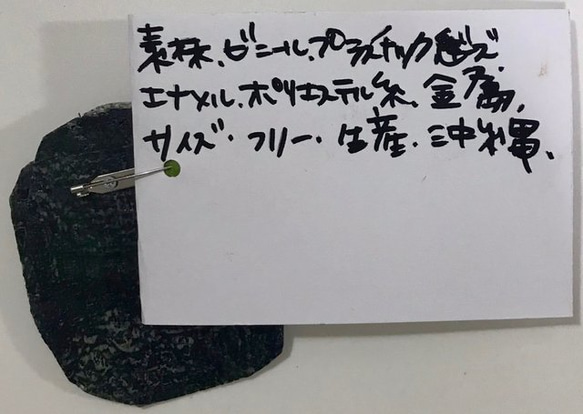 素材、ビニール、プラスチックビーズ、
エナメル、ポリエステル糸、金属、
サイズ・フリー・生産・沖縄、